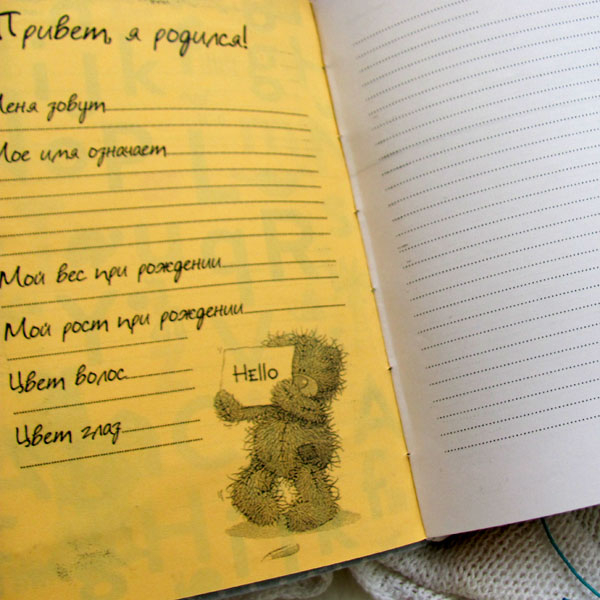 Привет, я родился!
Меня зовут
Мое имя означает
Мой вес при рождении
Мой рост при рождении
Цвет волос
Цвет глаз
Hello